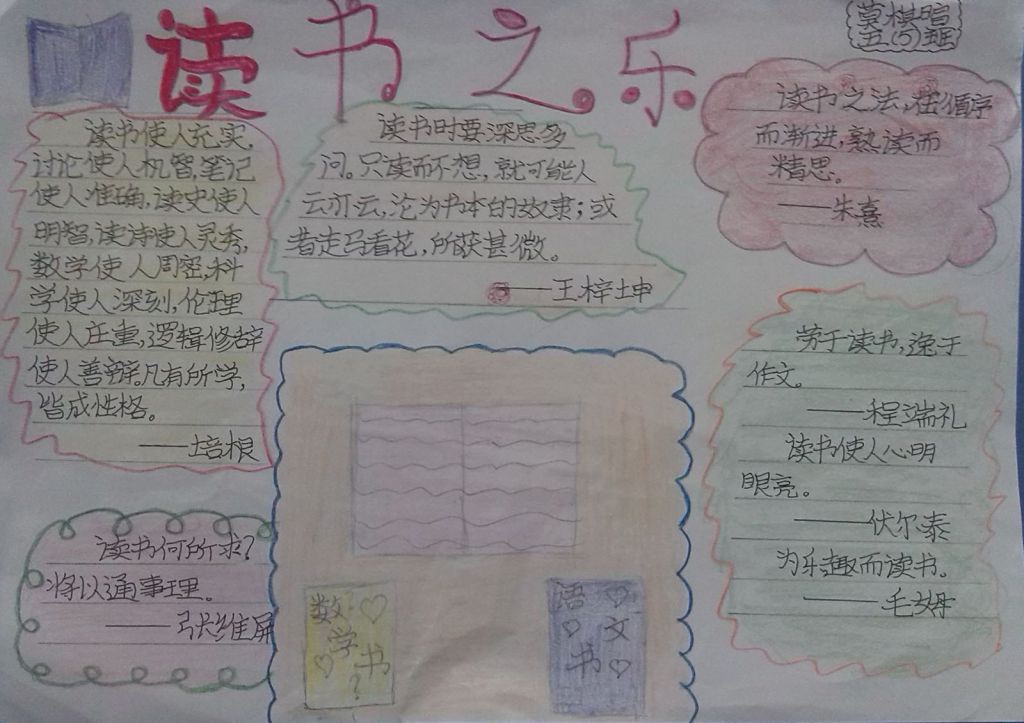 读书之乐
莫棋暄
五(5)班
读书使人充实,
讨论使人机智,笔记
使人准确,读史使人
明智,读诗使人灵秀,
数学使人周密,科
学使人深刻,伦理
使人庄重,逻辑修辞
使人善辩。凡有所学,
皆成性格。
——培根
读书时要深思多
问。只读而不想,就可能人
云亦云,沦为书本的奴隶;或
者走马看花,所获甚微。
——王梓坤
读书之法,在循序
而渐进,熟读而
精思。
——朱熹
劳于读书,逸于
作文。
——程端礼
读书使人心明
眼亮。
——伏尔泰
为乐趣而读书。
——毛姆
读书何所求?
将以通事理。
——张维屏
数学书?
语文书